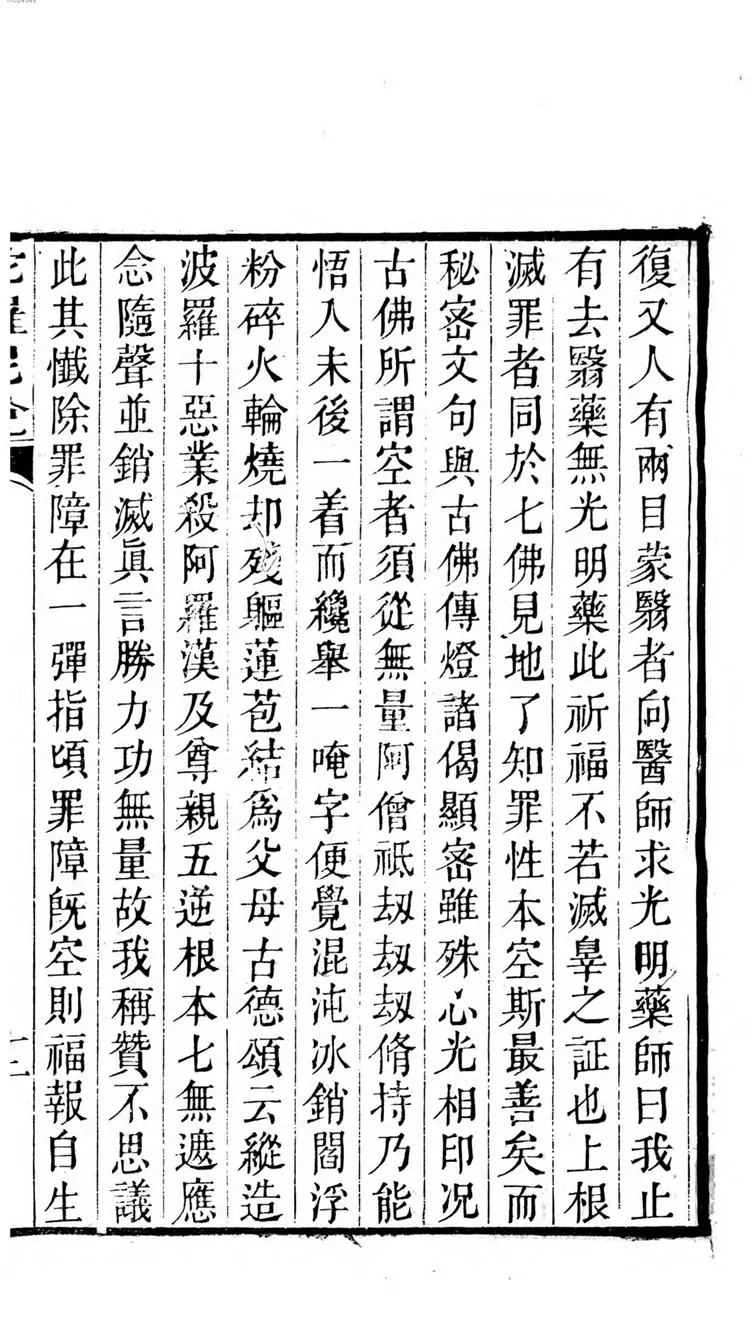 復又人有兩目蒙翳者向醫師求光明藥師曰我止
有去翳藥無光明藥此祈福不若滅辠之証也上根
滅罪者同於七佛見地了知罪性本空斯最善矣而
秘密文句與古佛傳燈諸偈顯密雖殊心光相印况
古佛所謂空者須從無量阿僧祗刼刼刼脩持乃能
悟入末後一着而纔舉一唵字便覺混沌冰銷閻浮
粉碎火輪燒却殘軀蓮苞結爲父母古德頌云縱造
波羅十惡業殺阿羅漢及尊親五逆根本七無遮應
念隨聲並銷滅眞言勝力功無量故我稱贊不思議
此其懺除罪障在一彈指頃罪障旣空則福報自生